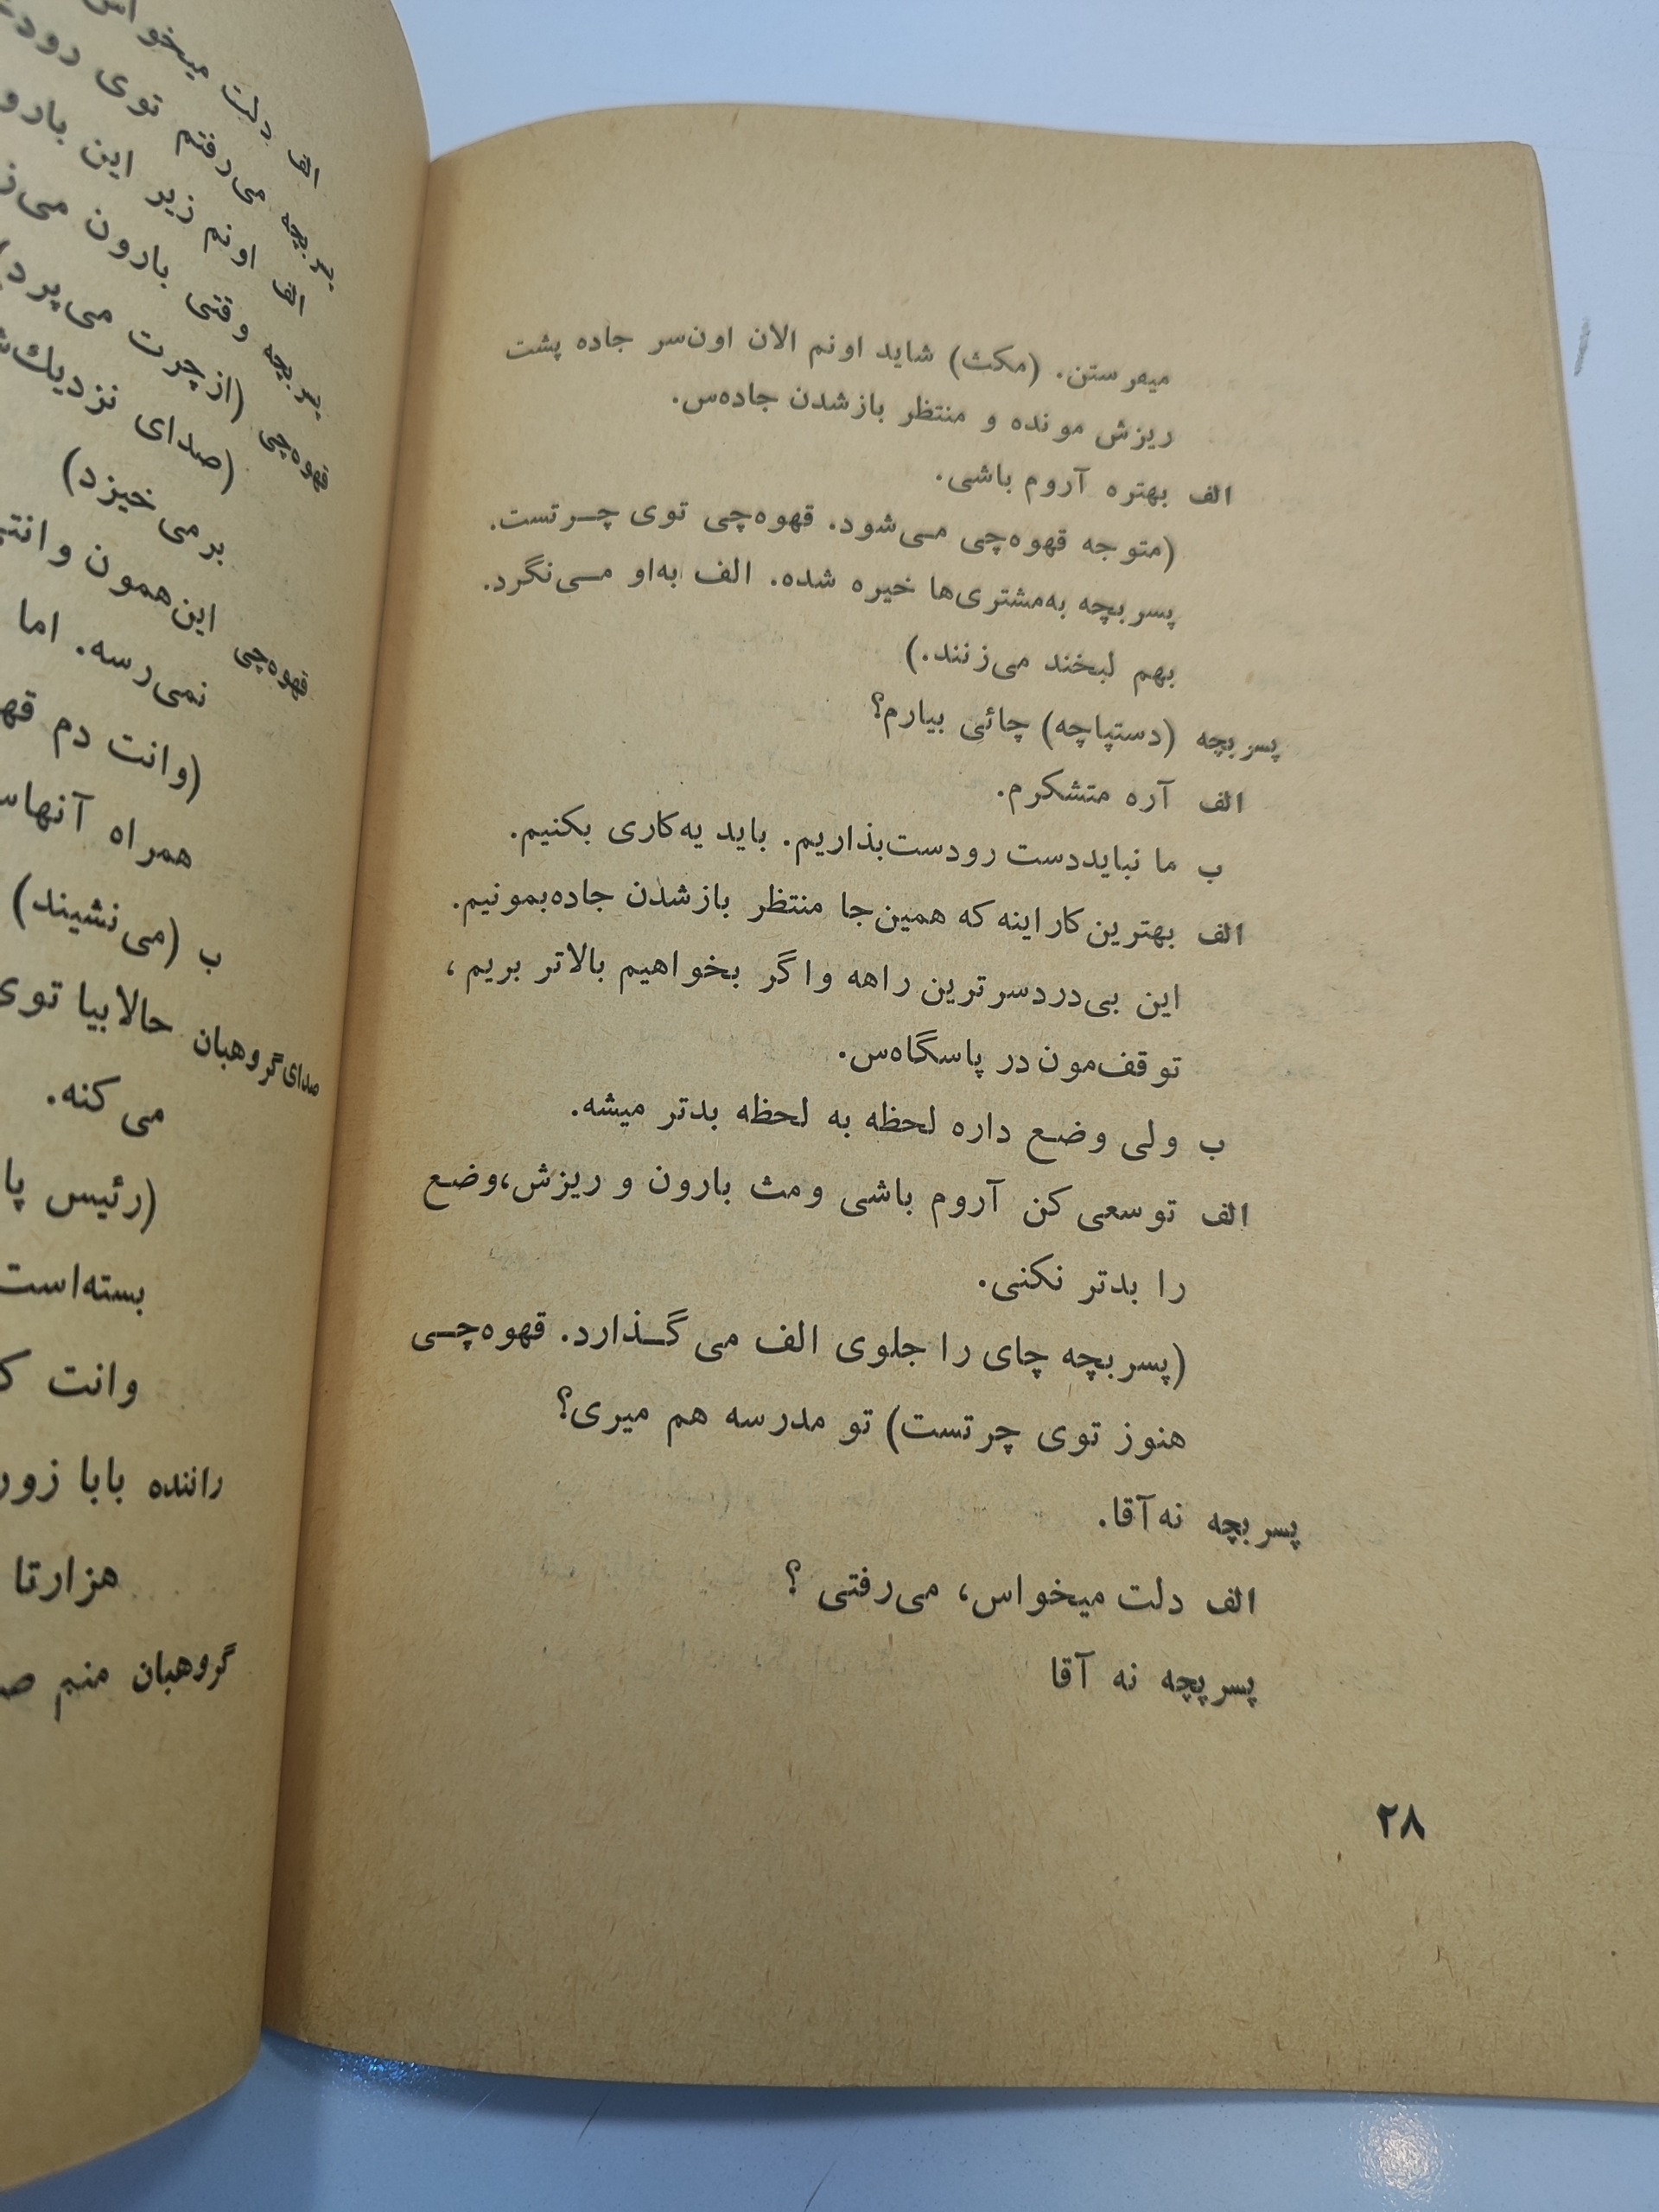 میفرستن. (مکث) شاید اونم الان اون‌سر جاده پشت
ریزش مونده و منتظر بازشدن جاده‌س.
الف بهتره آروم باشی.
(متوجه قهوه‌چی مـی‌شود. قهوه‌چی توی چـرتست.
پسربچه به‌مشتری‌ها خیره شده. الف به‌او مـی‌نگرد.
بهم لبخند می‌زنند.)
پسربچه (دستپاچه) چائی بیارم؟
الف آره متشکرم.
ب ما نبایددست رودست‌بذاریم. باید یه‌کاری بکنیم.
الف بهترین‌کار اینه که همین‌جا منتظر بازشدن جاده‌بمونیم.
این بی‌دردسرترین راهه واگر بخواهیم بالاتر بریم،
توقف‌مون در پاسگاه‌س.
ب ولی وضع داره لحظه به لحظه بدتر میشه.
الف توسعی کن آروم باشی ومث بارون و ریزش،وضع
را بدتر نکنی.
(پسربچه چای را جلوی الف می گـذارد. قهوه‌چـی
هنوز توی چرتست) تو مدرسه هم میری؟
پسربچه نه‌آقا.
الف دلت میخواس، می‌رفتی ؟
پسرپچه نه آقا
۲۸
الف دلت
پسربچه می‌رفتم توی
الف اونم زیر این
پسربچه وقتی بارون
قهوه‌چی (ازچرت می‌پرد)
(صدای
برمی‌خیزد)
قهوه‌چی این‌همون
نمی‌رسه. اما
(وانت دم
همراه
ب (می‌نشیند)
صدای‌گروهبان حالابیا توی
می‌کنه.
(رئیس
بسته‌است
وانت
راننده بابا
هزارتا
گروهبان منم